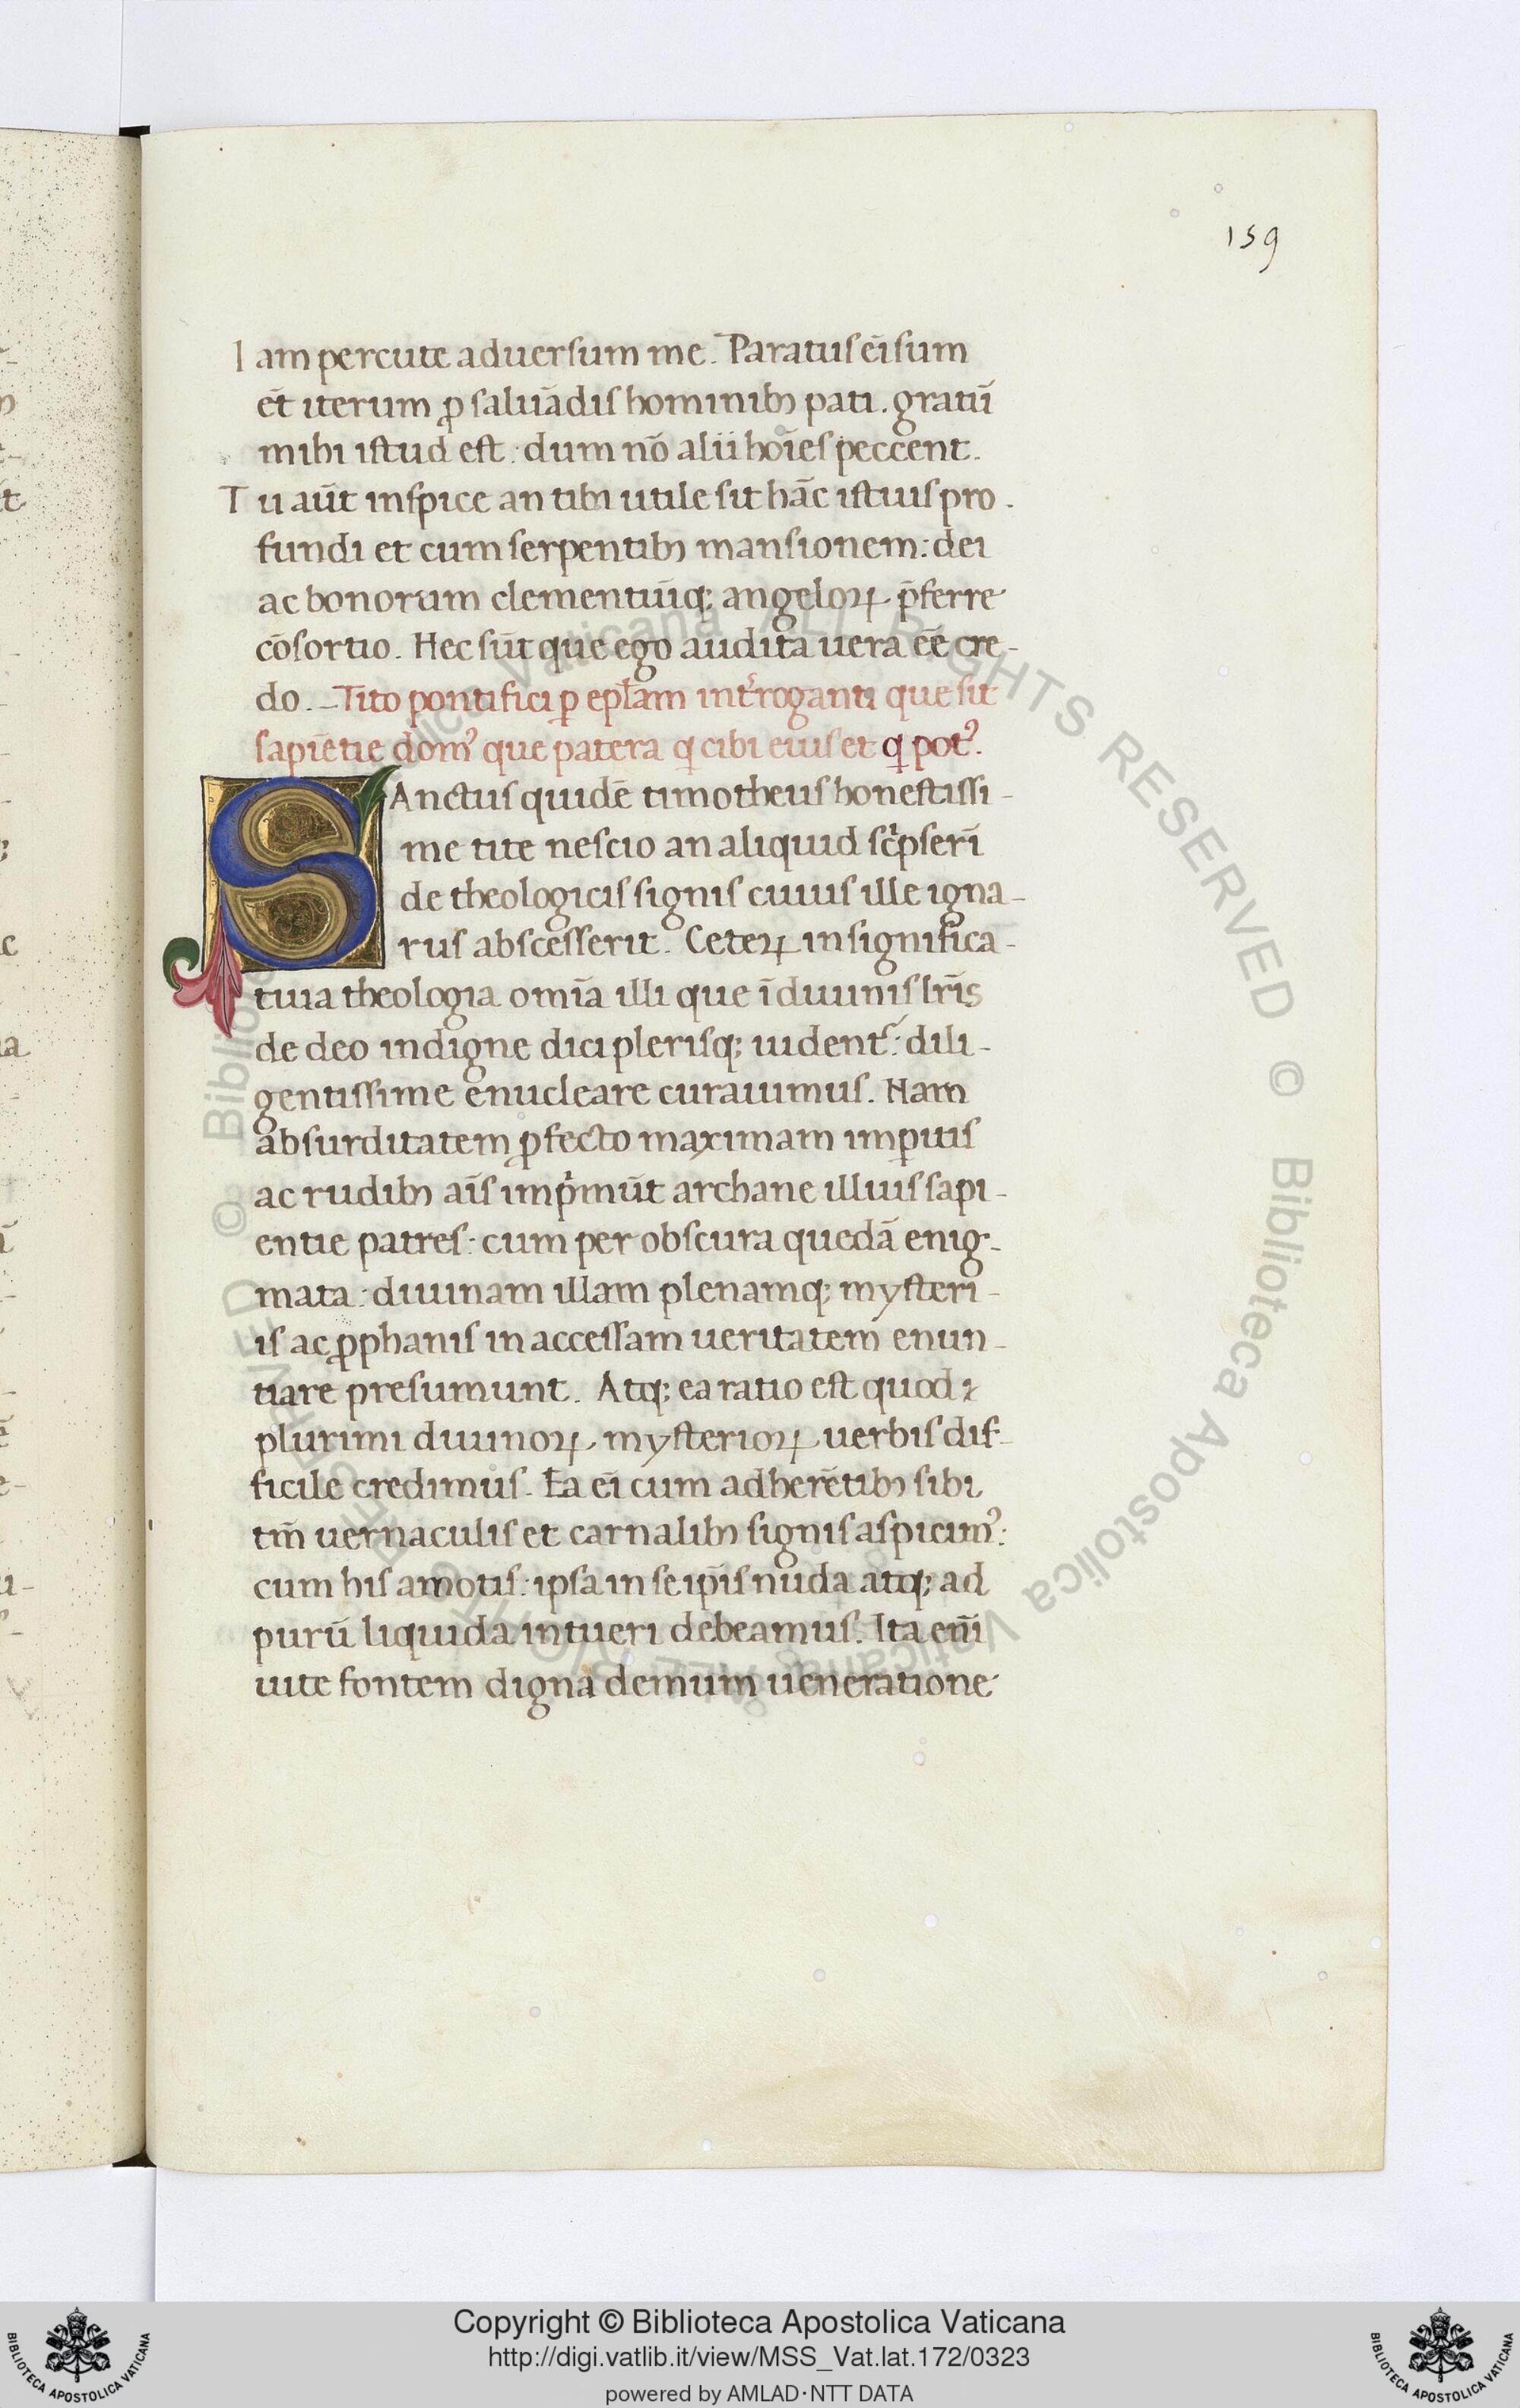 159
Iam percute aduersum me. Paratus ei᷑ sum
et̄ iterum ꝓ saluādis hominibꝫ pati. gratū
mihi istud est: dum nō alii hoīes peccent.
Tu aūt inspice an tibi utile sit hāc istius pro-
fundi et cum serpentibꝫ mansionem: dei
ac bonorum clementiūqꝫ angeloꝝ p̄ferre
cōsortio. Hec sūt que ego audita uera eē cre-
do. Tito pontifici ꝑ epl̄am int̓roganti que sit
sapiētie domꝰ que patera q̣ cibi eius et q̣ potꝰ.
SAnctus quidē timotheus honestissi-
me tite nescio an aliquid sc̓pserī
de theologicis signis cuius ille igna-
rus abscesserit. Ceteꝝ in significa-
tiua theologia omīa illi que ī diuinis lr̄is
de deo indigne dici plerisqꝫ uident᷑: dili-
gentissime enucleare curauimus. Nam
absurditatem ꝓfecto maximam imꝑitis
ac rudibꝫ aīs imp̓mūt archane illius sapi-
entie patres: cum per obscura quedā enig-
mata: diuinam illam plenamqꝫ mysteri-
is ac ꝓphanis inaccessam ueritatem enun-
tiare presumunt. Atqꝫ ea ratio est quod ⁊
plurimi diuinoꝝ mysterioꝝ uerbis dif-
ficile credimus. Ea eī cum adherētibꝫ sibi
tm̄ uernaculis et carnalibꝫ signis aspicimꝰ:
cum his amotis: ipsa in se ip̄is nuda atqꝫ ad
purū liquida intueri debeamus. Ita enī
uite fontem digna demum ueneratione
Copyright © Biblioteca Apostolica Vaticana
http://digi.vatlib.it/view/MSS_Vat.lat.172/0323
powered by AMLAD·NTT DATA